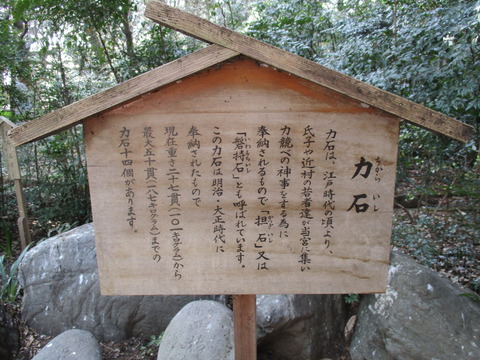 力石
ちから いし
力石は、江戸時代の頃より、
氏子や近村の若者達が当宮に集い
力競べの神事をする為に
奉納されるもので「担石」又は
かつぎいし
「磐持石」とも呼ばれています。
いわもちいし
この力石は明治・大正時代に
奉納されたもので
現在重さ二十七貫(一〇一キログラム)から
最大五十貫(一八七キログラム)までの
力石十四個があります。